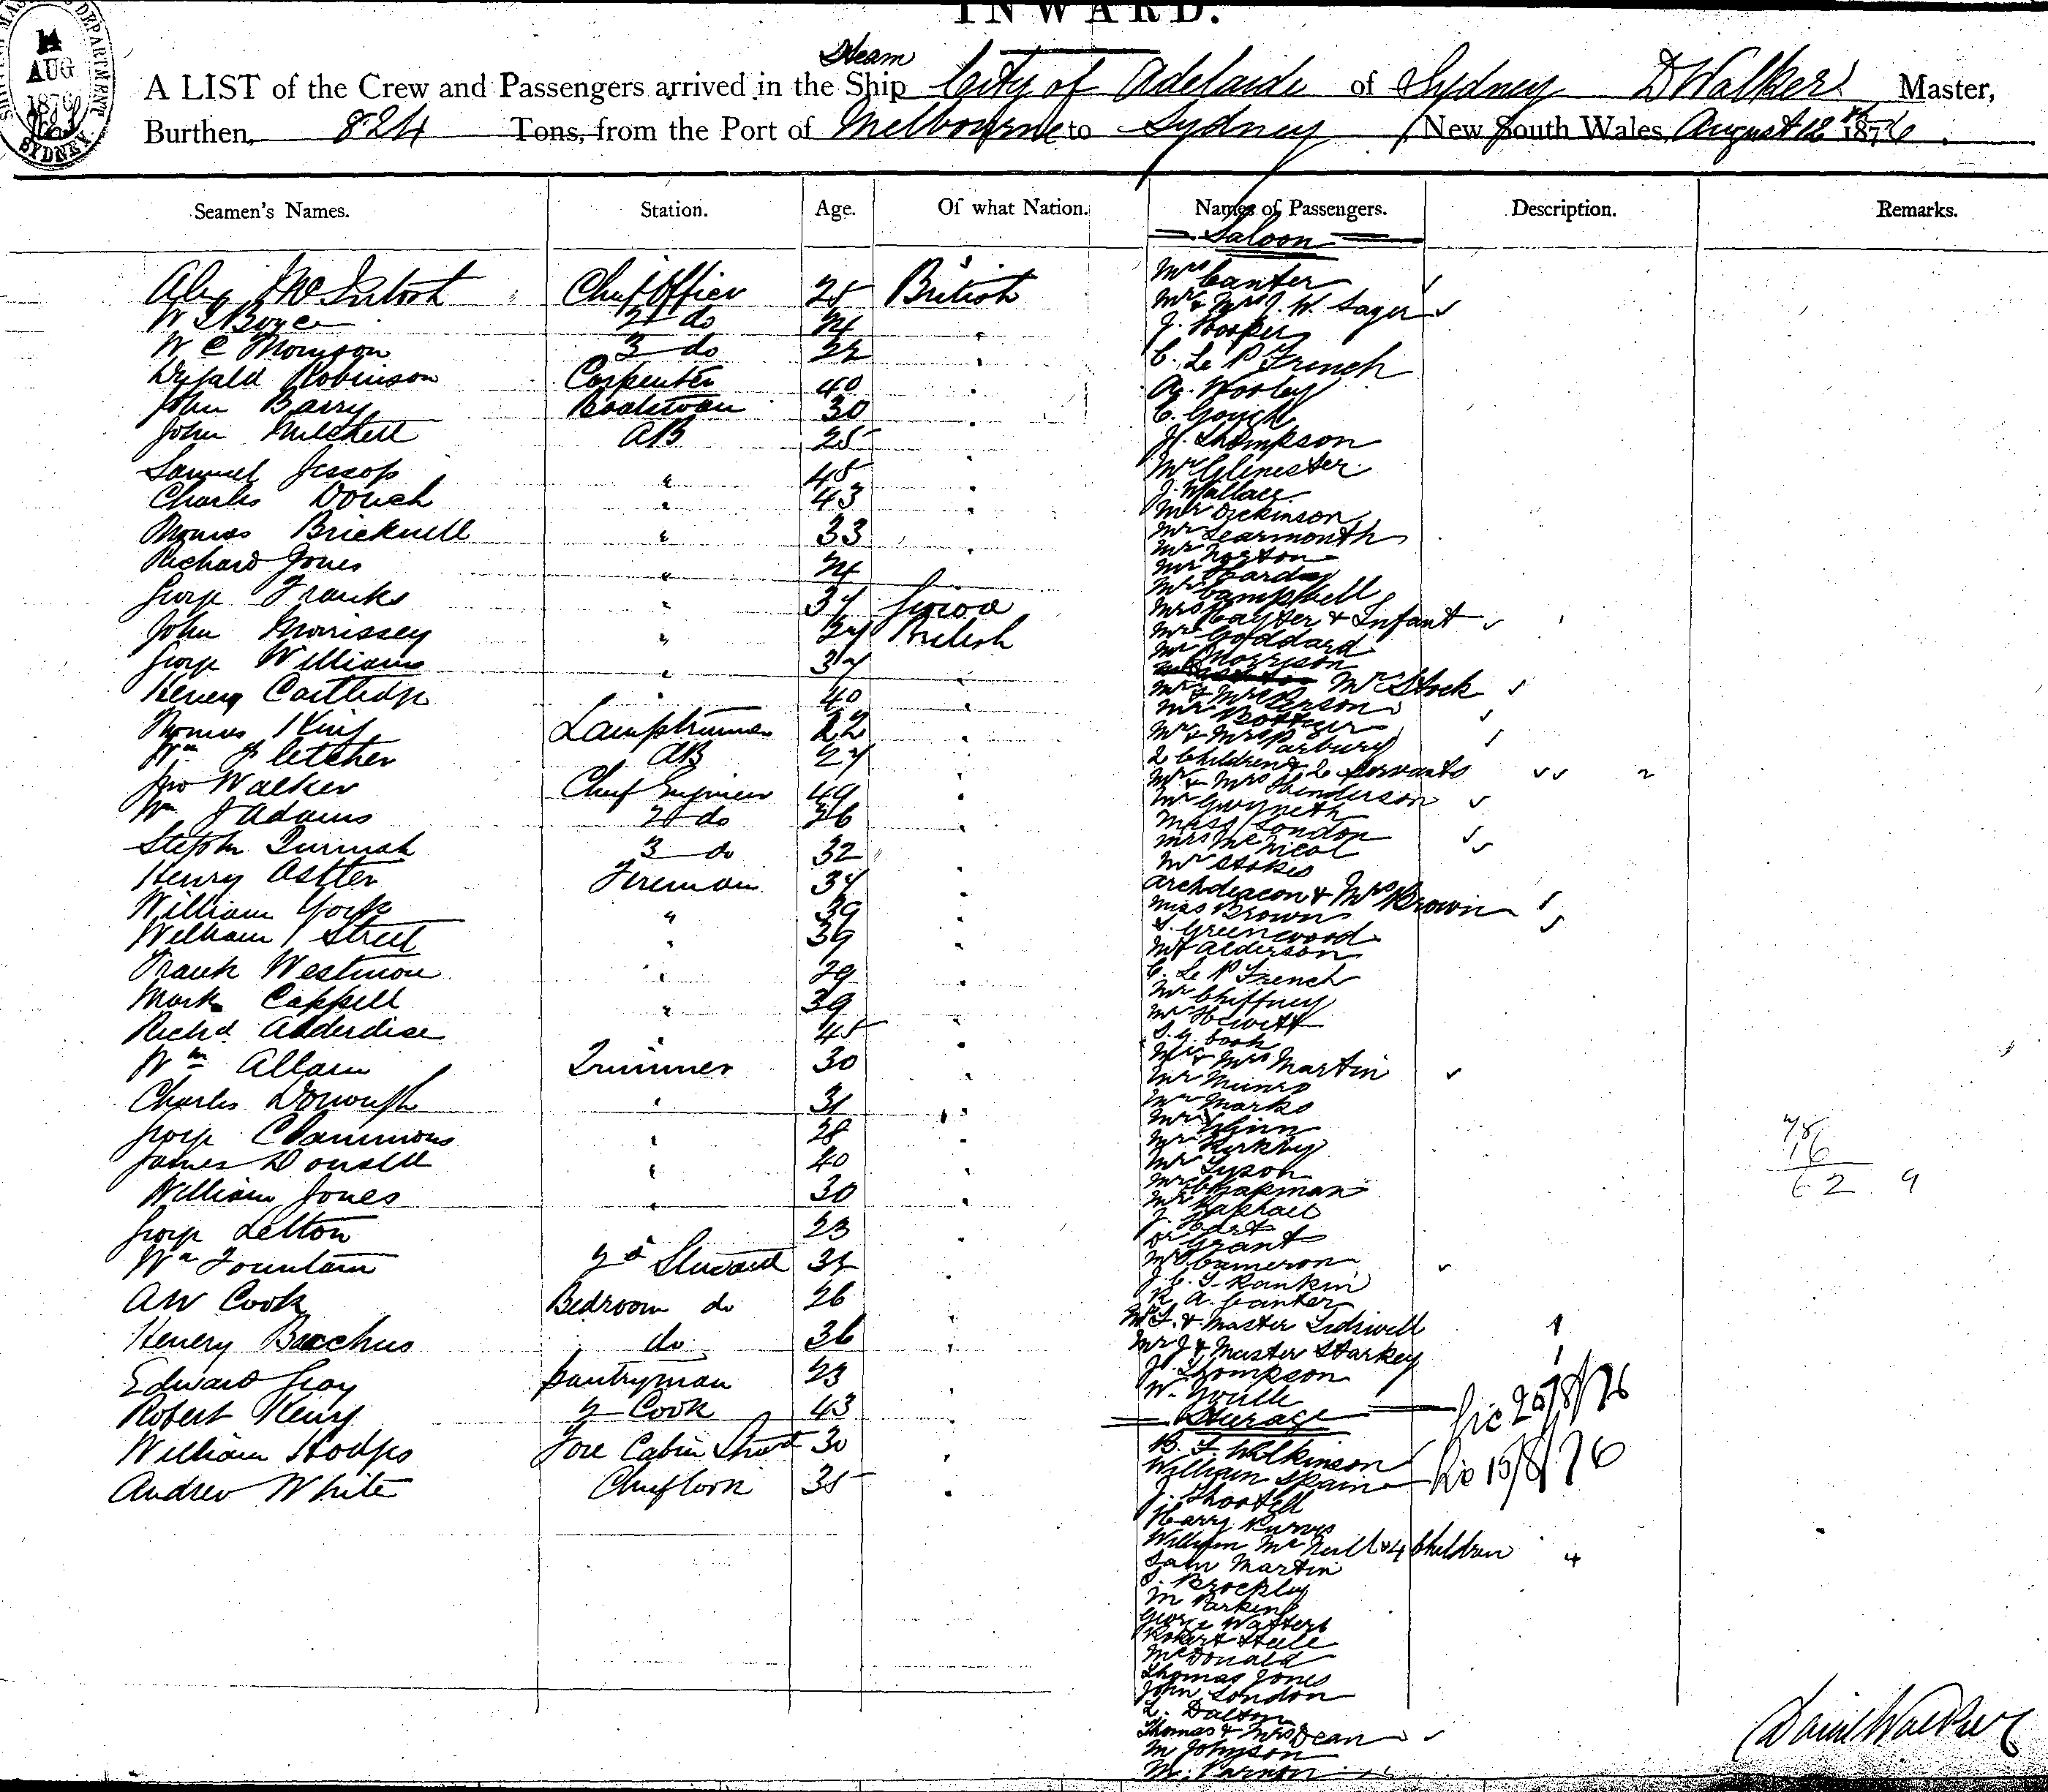 INWARD.
14
AUG
1876
SYDNEY.
Steam
A LIST of the Crew and Passengers arrived in the Ship City of Adelaide of Sydney D Walker Master,
Burthen, 824 Tons, from the Port of Melbourne to Sydney New South Wales, August 12th 1876.
Seamen's Names. Station. Age. Of what Nation. Names of Passengers. Description. Remarks.
Saloon
Alex McIntosh Chief Officer 25 British
W Boyce 2d do 24
W C Morrison 3 do 22
Robinson Carpenter 40
John Barry Boatswain 30
John Mitchell AB 25
Samuel Jessop " 45
Charles Douch " 43
Thomas Bricknell " 33
Richard Jones " 24
George Franks " 37
John Morrissey " British
George Williams " 37
Henery Cartledge " 40
Thomas King Lamptrimmer 22
Wm Fletcher AB 27
Jno Walker Chief Engineer 49
Wm J Adams 2d do 36
Stephen 3 do 32
Henry Astler Fireman 34
William York " 39
William Street " 39
Frank Westmore " 29
Mark Cappell " 39
Richd Alderdise " 45
Wm Allam Trimmer 30
Charles Donough " 31
George Clammons " 28
James Donald " 40
William Jones " 30
George Letton 23
Wm Fountain 2d Steward 32
AW Cook Bedroom do 26
Henery Bacchus do 36
Edward Gray Pantryman 23
Robert Kenry 2 Cook 43
William Hodges Fore Cabin Stwd 30
Andrew White Chief Cook 35
Mrs Canter
Mr & Mrs J. W. Sager
J. Hooper
C. Le P French
A. Wooley
C. Gough
J. Thompson
Mr Glenister
J. Wallace
Mr Dickinson
Mr Learmonth
Mr Norton
Mr Hardy
Mr Campbell
Mrs Cayter & Infant
Mr Goddard
Mr Morrison
Mr Stock
Mr & Mrs Person
Mr Bottger
Mr & Mrs Parbury
2 Children & 2 Servants
Mr & Mrs Henderson
Mr Gwyneth
Miss London
Mrs McNicol
Mr Stokes
Archdeacon & Mrs Brown
Miss Brown
S. Greenwood
Mr Alderson
C. Le P French
Mr Chiffney
Mr Hewitt
S. G. Cook
Mr & Mrs Martin
Mr Munro
Mr Marks
Mr Glinn
Mr Kirkby
Mr Tyson
Mr Chapman
Mr Raphael
J. Hart
Dr Grant
Mr Cameron
J. C. T. Rankin
R. A. Canter
Mr T. & Master Lidswell
Mr J & Master Starkey
J. Thompson
W. Youlle
Steerage
B. T. Wilkinson
William Spain
J. Shootell
Harry Purves
William McNeill & 4 Children 4
Sam Martin
S. Brockley
M Parkins
George Watters
Robert Steele
McDonald
Thomas Jones
John London
L. Dalton
Thomas & Mrs Dean
M Johnson
M. Parnon
20/8/76
15/8/76
78
16
62 9
David Walker